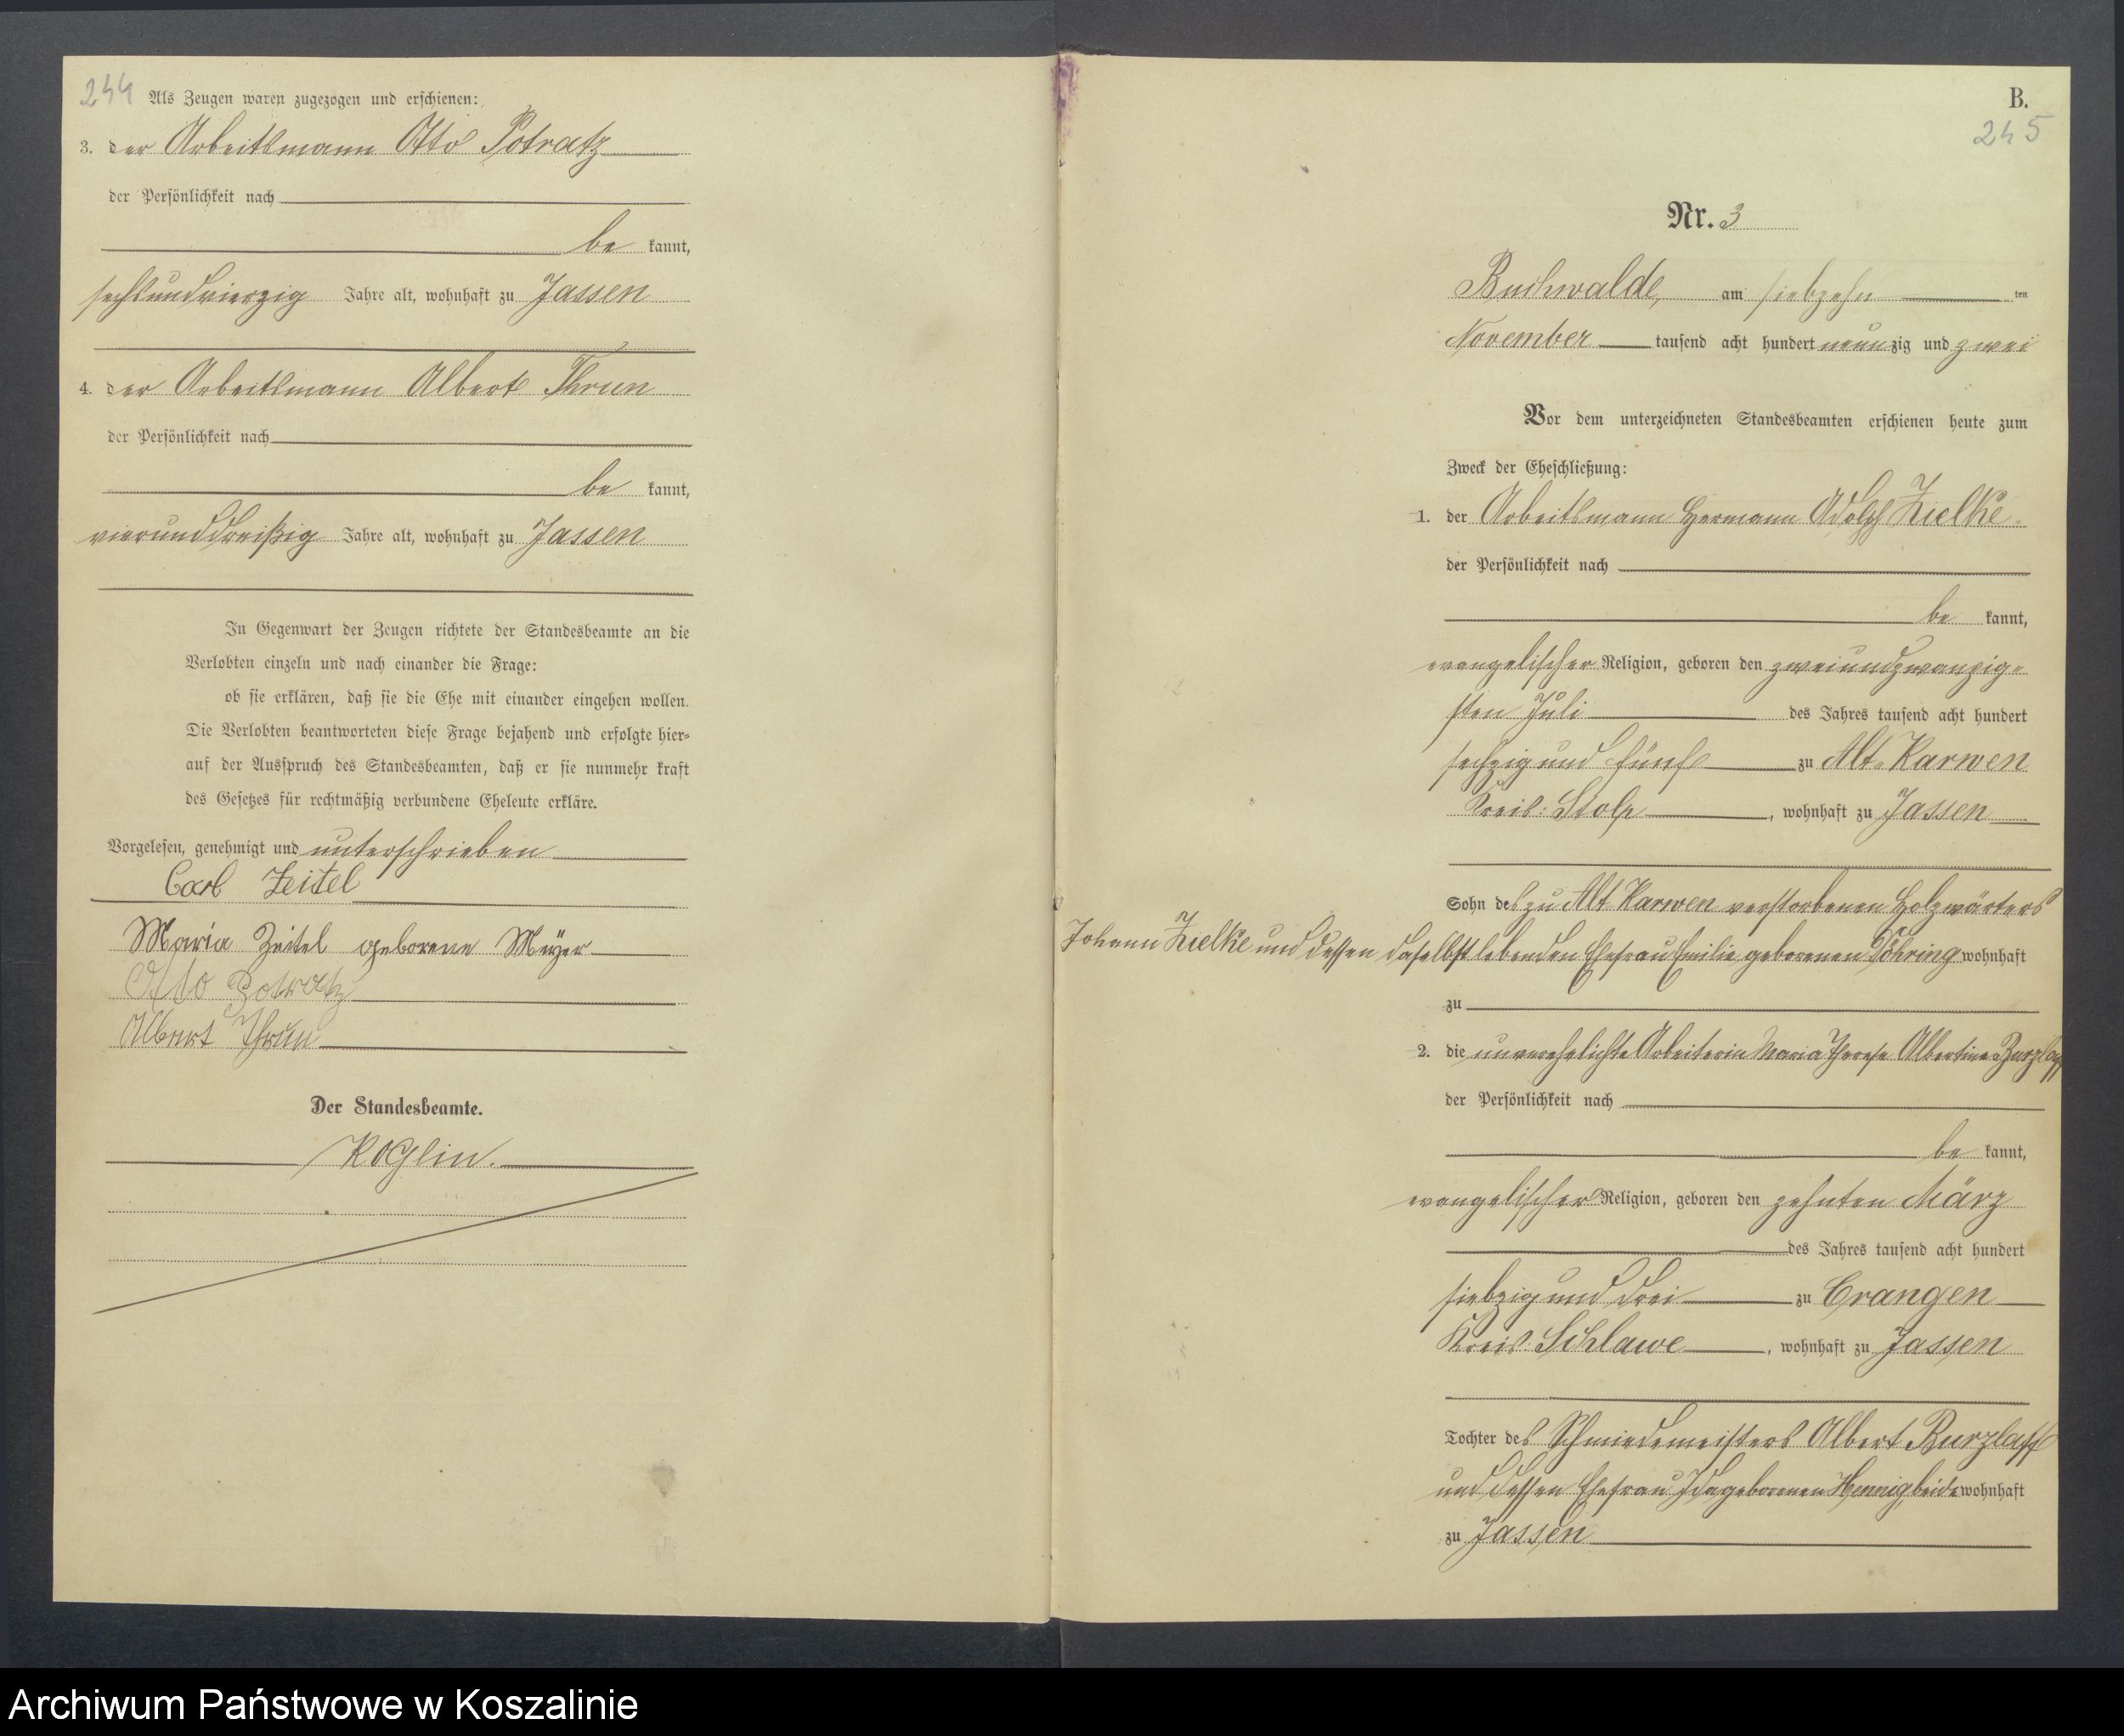 244
Als Zeugen waren zugezogen und erschienen:
3. der Arbeitsmann Otto Potratz
der Persönlichkeit nach
be kannt,
sechsundvierzig Jahre alt, wohnhaft zu Jassen
4. der Arbeitsmann Albert Thrun
der Persönlichkeit nach
be kannt,
vierunddreißig Jahre alt, wohnhaft zu Jassen
In Gegenwart der Zeugen richtete der Standesbeamte an die
Verlobten einzeln und nach einander die Frage:
ob sie erklären, daß sie die Ehe mit einander eingehen wollen.
Die Verlobten beantworteten diese Frage bejahend und erfolgte hier-
auf der Ausspruch des Standesbeamten, daß er sie nunmehr kraft
des Gesetzes für rechtmäßig verbundene Eheleute erkläre.
Vorgelesen, genehmigt und unterschrieben
Carl Zeitel
Maria Zeitel geborene Meyer
Otto Potratz
Albert Thrun
Der Standesbeamte.
Koglin.
B.
245
Nr. 3
Buchwalde, am siebzehn ten
November tausend acht hundert neunzig und zwei
Vor dem unterzeichneten Standesbeamten erschienen heute zum
Zweck der Eheschließung:
1. der Arbeitsmann Hermann Adolph Zielke.
der Persönlichkeit nach
be kannt,
evangelischer Religion, geboren den zweiundzwanzig-
sten Juli des Jahres tausend acht hundert
sechzig und fünf zu Alt-Karwen
Kreis: Stolp, wohnhaft zu Jassen
Sohn des zu Alt Karwen verstorbenen Holzwärters
Johann Zielke und dessen daselbst lebenden Ehefrau Emilie geborenen Döhring wohnhaft
zu
2. die unverehelichte Arbeiterin Maria Therese Albertine Burzlaff
der Persönlichkeit nach
be kannt,
evangelischer Religion, geboren den zehnten März
des Jahres tausend acht hundert
siebzig und drei zu Crangen
Kreis: Schlawe, wohnhaft zu Jassen
Tochter des Schmiedemeisters Albert Burzlaff
und dessen Ehefrau Ida geborenen Hennig, beide wohnhaft
zu Jassen
Archiwum Państwowe w Koszalinie